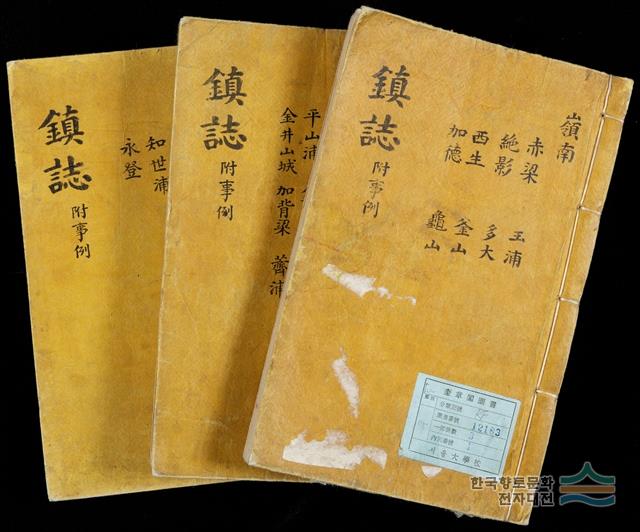 鎮誌
附事例
知世浦
永登
鎮誌
附事例
平山浦
金井山城 加背梁 薺浦
嶺南
赤梁 玉浦
絶影 多大
西生 釜山
加德 龜山
鎮誌
附事例
奎章閣圖書
12163
서울大學校
한국향토문화
전자대전